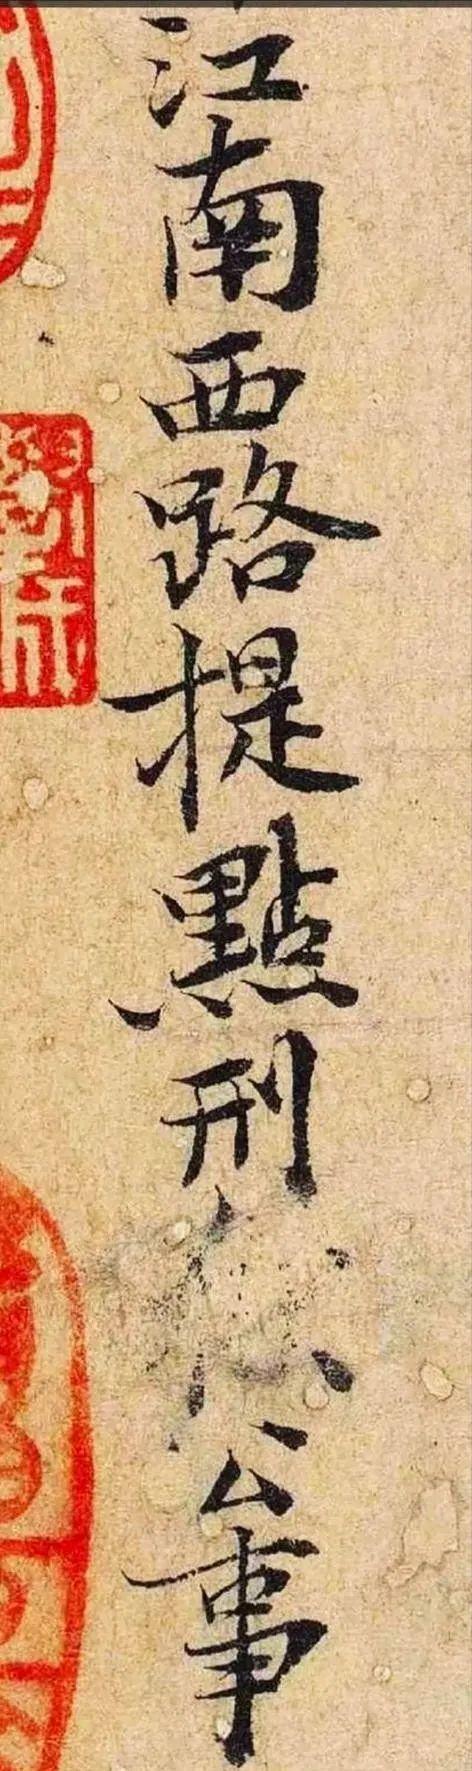 江南西路提點刑獄公事